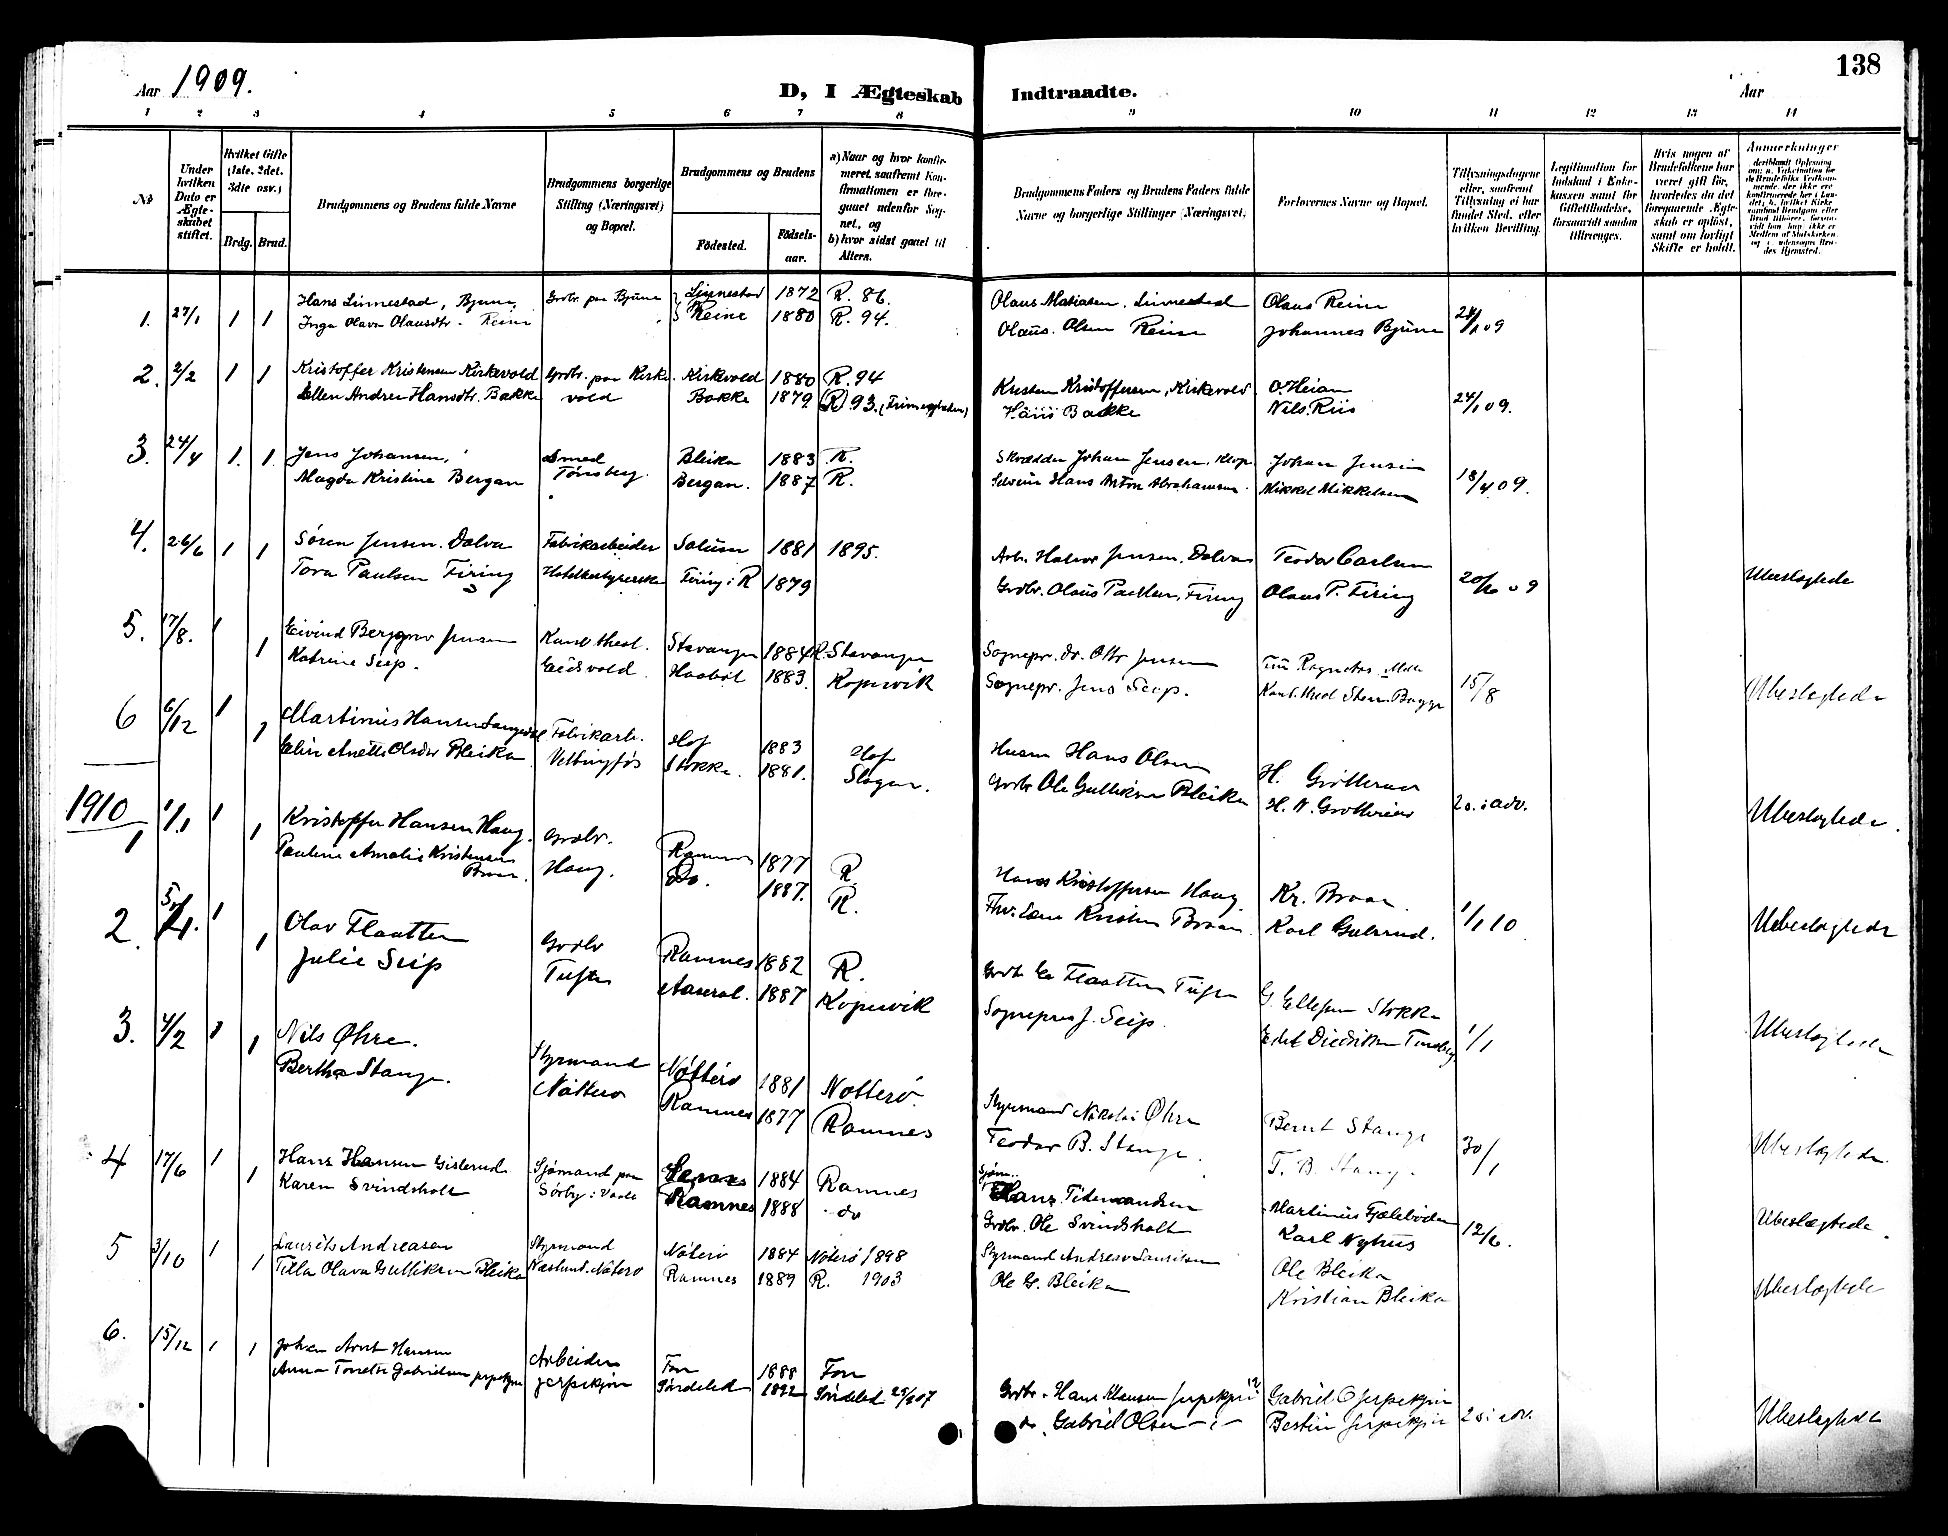 138
Aar 1909.
D, I Ægteskab Indtraadte.
Aar
1 2 3 4 5 6 7 8 9 10 11 12 13 14
No
Under hvilken Dato er Ægteskabet stiftet.
Hvilket Gifte (1ste, 2det, 3die osv.)
Brdg. Brud.
Brudgommens og Brudens fulde Navne
Brudgommens borgerlige Stilling (Næringsvei) og Bopæl.
Brudgommens og Brudens
Födested.
Födselsaar.
a) Naar og hvor konfirmeret, saafremt Konfirmationen er foregaaet udenfor Sognet, og
b) hvor sidst gaaet til Alters.
Brudgommens Faders og Brudens Faders fulde Navne og borgerlige Stillinger (Næringsvei).
Forlovernes Navne og Bopæl.
Tillysningsdagene eller, saafremt Tillysning ei har fundet Sted, efter hvilken Bevilling.
Legitimation for Indskud i Enkekassen samt for Giftetilladelse, forsaavidt saadan tiltrænges.
Hvis nogen af Brudefolkene har været gift för, hvorledes da det foregaaende Ægteskab er oplöst, samt om lovligt Skifte er holdt.
Anmærkninger
1. 27/1 1 1 Hans Linnestad, Bjune, Grdbr. paa Bjune Linnestad 1872 R. 86. Olaus Matiasen, Linnestad Olaus Reine 24/1 09
Inga Olava Olausdtr. Reine Reine 1880 R. 94. Olaus Olsen Reine Johannes Bjune
2. 2/2 1 1 Kristoffer Kristensen Kirkevold Grdbr. paa Kirke- Kirkevold 1880 R. 94 Kristen Kristoffersen, Kirkevold O. Heian 24/1 09.
Ellen Andrea Hansdtr. Bakke vold Bakke 1879 R 93. Hans Bakke Nils Riis
3. 24/4 1. 1. Jens Johansen, Smed Bleika 1883 R. Skrædder Johan Jensen, Johan Jensen 18/4 09.
Magda Kristine Bergan Tønsberg. Bergan. 1887 R. Hans Anton Abrahamsen Mikkel Mikkelsen
4. 26/6 1 1 Søren Jensen Dalva Fabrikarbeider Solum 1881 1895. Arb. Halvor Jensen, Dalva Teodor Carlsen
Tora Paulsen Firing Hotelbestyrerske Firing i R 1879 Grdbr. Olaus Paulsen, Firing Olaus P. Firing 20/6 09 Ubeslægtede
5. 17/8. 1 1 Eivind Berggrav Jensen Kand. theol. Stavanger 1884 R. Stavanger Sognepr. dr. Otto Jensen
Katrine Seip. Eidsvold. Hasbøl 1883. Kopervik Sognepr. Jens Seip. 15/8 Ubeslegtede
6 6/12 1 1 Martinius Hansen Fabrikarb. Hof 1883 Hof Husm Hans Olsen H. Grötterud
Elin Anette Olsdtr Bleika Stokke. 1881. Slagen. Grdbr Ole Gulliksen Bleika 2 s. i adv. Ubeslegtede.
1910
1 1/1 1 1 Kristoffer Hansen Haug. Grdbr. Ramnes 1877 R. Hans Kristoffersen Haug Kr. Braan.
Pauline Amalie Kristensen Braan. Haug. do. 1887. R. Kristen Braan Karl Galsrud. 1/1 10 Ubeslegtede
2. 1 1 Olav Flaatten Grdbr Ramnes 1882 R. Grdbr Flaatten Tufte G. Ellefsen Stokke
Julie Seip Tufte Aaseral. 1887 Kopervik Sognepres J. Seip. Diedriksen Tønsberg 1/1 Ubeslegtede
3. 4/2 1 1 Nils Øhre. Styrmand Nøtterø 1881 Nøtterø. Styrmand Nikolai Øhre Bernt Stange
Bertha Stange. Nøtterø Ramnes 1877 Ramnes Teodor B. Stange. T. B. Stange. 30/1 Ubeslegtede.
4 17/6 1 1 Hans Hansen Gislerud Sjømand paa 1884 Ramnes Sjøm. Hans Tidemandsen Martinius Fjeleboden 12/6.
Karen Svindsholt Sörby i Ramnes 1888 do Grdbr. Ole Svindsholt Karl Nyhus Ubeslægtede.
5 3/10 1 1 Laurits Andreasen Styrmand Nøterø 1884 Nøterø 1898 Styrmand Andreas Lauritsen Ole Bleika
Tilla Olava Gulliksen Bleika Nøterø Ramnes 1889 R. 1903 Ole G. Bleika Kristian Bleika Ubeslægtede
6. 15/12 1 1 Johan Arnt Hansen Arbeider Fon 1888 Fon Grdbr. Hans Klausen Jerpekjøn Gabriel O Jerpekjøn
Anna Gabrielsen Jerpekjøn Jerpekjøn Søndeled 1892 Søndeled do. Gabriel Olsen Jerpekjøn 2 s i adv. Ubeslegtede